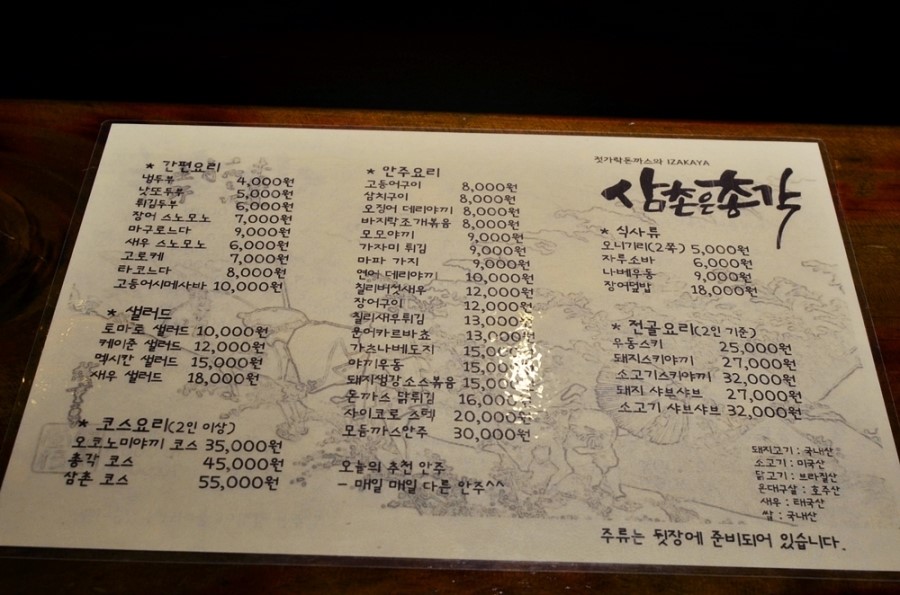 * 간편요리
냉두부 4,000원
낫또두부 5,000원
튀김두부 6,000원
장어 스노모노 7,000원
마구로느다 9,000원
새우 스노모노 6,000원
고로케 7,000원
타코느다 8,000원
고등어시메사바 10,000원
* 샐러드
토마토 샐러드 10,000원
케이준 샐러드 12,000원
멕시칸 샐러드 15,000원
새우 샐러드 18,000원
* 코스요리(2인 이상)
오코노미야끼 코스 35,000원
총각 코스 45,000원
삼촌 코스 55,000원
* 안주요리
고등어구이 8,000원
삼치구이 8,000원
오징어 데리야끼 8,000원
바지락조개볶음 8,000원
모모야끼 9,000원
가자미 튀김 9,000원
마파 가지 9,000원
연어 데리야끼 10,000원
칠리버섯새우 12,000원
장어구이 12,000원
칠리새우튀김 13,000원
문어카르바쵸 13,000원
가츠나베도지 15,000원
야끼우동 15,000원
돼지생강소스볶음 15,000원
돈까스 닭튀김 16,000원
사이코로 스텍 20,000원
모듬까스안주 30,000원
오늘의 추천 안주
- 매일 매일 다른 안주^^
젓가락돈까스와 IZAKAYA
삼촌은총각
* 식사류
오니기리(2쪽) 5,000원
자루소바 6,000원
나베우동 9,000원
장어덮밥 18,000원
* 전골요리(2인 기준)
우동스키 25,000원
돼지스키야끼 27,000원
소고기스키야끼 32,000원
돼지 샤브샤브 27,000원
소고기 샤브샤브 32,000원
돼지고기 : 국내산
소고기 : 미국산
닭고기 : 브라질산
은대구살 : 호주산
새우 : 태국산
쌀 : 국내산
주류는 뒷장에 준비되어 있습니다.